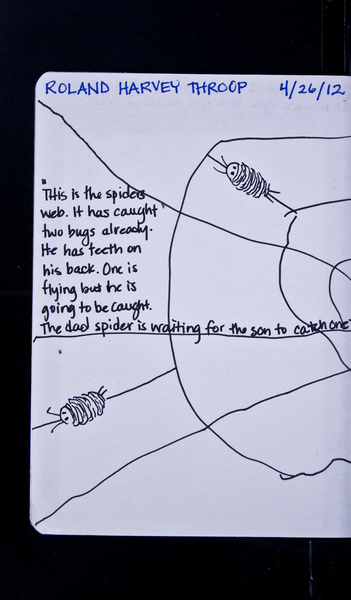 ROLAND HARVEY THROOP 4/26/12
"This is the spiders
web. It has caught
two bugs already.
He has teeth on
his back. One is
flying but he is
going to be caught.
The dad spider is waiting for the son to catch one